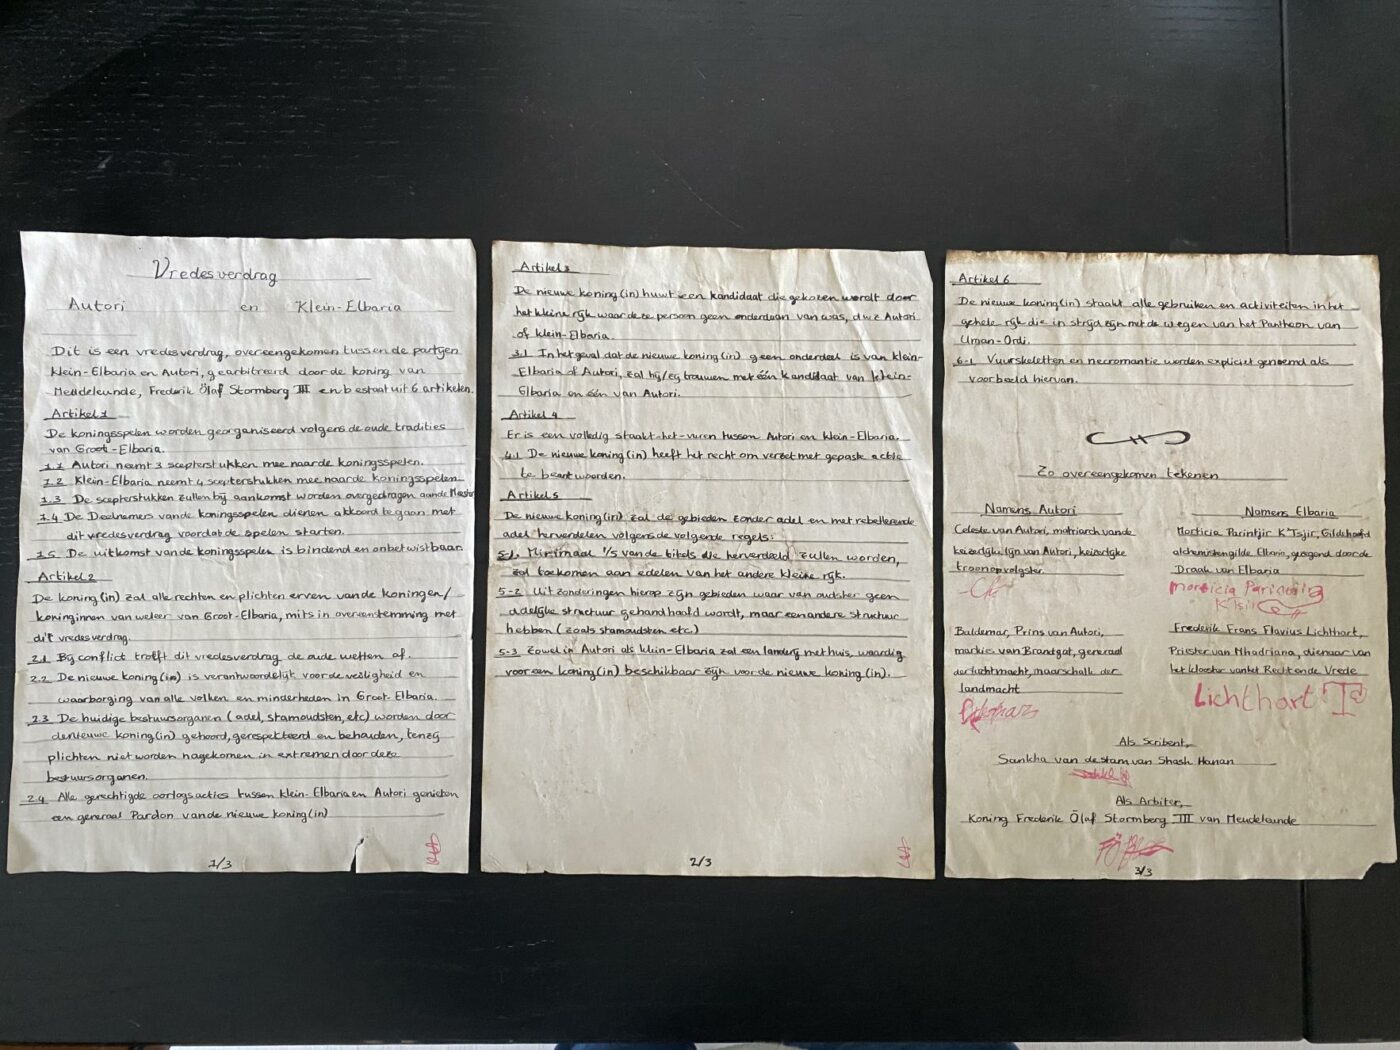 Vredesverdrag
Autori en Klein-Elbaria
Dit is een vredesverdrag, overeengekomen tussen de partijen
Klein-Elbaria en Autori, gearbitreerd door de koning van
Meudeleunde, Frederik Ölaf Stormberg III en bestaat uit 6 artikelen.
Artikel 1
De koningsspelen worden georganiseerd volgens de oude tradities
van Groot-Elbaria.
1.1 Autori neemt 3 scepterstukken mee naar de koningsspelen.
1.2 Klein-Elbaria neemt 4 scepterstukken mee naarde koningsspelen
1.3 De scepterstukken zullen bij aankomst worden overgedragen aan de
1.4 De Deelnemers van de koningsspelen dienen akkoord te gaan met
dit vredesverdrag voordat de spelen starten.
1.5 De uitkomst van de koningsspelen is bindend en onbetwistbaar.
Artikel 2
De koning(in) zal alle rechten en plichten erven van de koningen/
koninginnen van weleer van Groot-Elbaria, mits in overeenstemming met
dit vredesverdrag.
2.1 Bij conflict troft dit vredesverdrag de oude wetten af.
2.2 De nieuwe koning(in) is verantwoordelijk voor de veiligheid en
waarborging van alle volken en minderheden in Groot-Elbaria.
2.3 De huidige bestuursorganen (adel, stamoudsten, etc) worden door
de nieuwe koning(in) gehoord, gerespekteerd en behouden, tenzij
plichten niet worden nagekomen in extremen door deze
bestuursorganen.
2.4 Alle gerechtigde oorlogsacties tussen Klein-Elbaria en Autori genieten
een generaal Pardon van de nieuwe koning(in)
1/3
Artikel 3
De nieuwe koning(in) huwt een kandidaat die gekozen wordt door
het kleine rijk waar deze persoon geen onderdaan van was, d.w.z Autori
of Klein-Elbaria.
3.1 In het geval dat de nieuwe koning(in) geen onderdeel is van Klein-
Elbaria of Autori, zal hij/zij trouwen met één kandidaat van Klein-
Elbaria en één van Autori.
Artikel 4
Er is een volledig staakt-het-vuren tussen Autori en Klein-Elbaria.
4.1 De nieuwe koning(in) heeft het recht om verzet met gepaste actie
te beantwoorden.
Artikel 5
De nieuwe koning(in) zal de gebieden zonder adel en met rebellerende
adel herverdelen volgens de volgende regels:
5.1 Minimaal 1/5 van de titels die herverdeeld zullen worden,
zal toekomen aan edelen van het andere kleine rijk.
5.2 Uitzonderingen hierop zijn gebieden waar van oudsher geen
adelijke structuur gehandhaafd wordt, maar een andere structuur
hebben (zoals stamoudsten etc)
5.3 Zowel in Autori als Klein-Elbaria zal een landerij met huis, waardig
voor een koning(in) beschikbaar zijn voor de nieuwe koning(in).
2/3
Artikel 6
De nieuwe koning(in) staakt alle gebruiken en activiteiten in het
gehele rijk die in strijd zijn met de wegen van het Pantheon van
Uman-Ordi.
6.1 Vuurskeletten en necromantie worden expliciet genoemd als
voorbeeld hiervan.
Zo overeengekomen tekenen
Namens Autori
Celeste van Autori, matriarch van de
keizerlijke lijn van Autori, keizerlijke
troonopvolgster.
Baldemar, Prins van Autori,
markies van Brandgat, generaal
der luchtmacht, maarschalk der
landmacht
Namens Elbaria
Morticia Parintjir K'Tsjir, Gildehoofd
alchemistengilde Elbaria, gezegend door de
Draak van Elbaria
Morticia
K'Tsir
Frederik Frans Flavius Lichthart,
Priester van Mhadriana, dienaar van
het klooster van het Rechtende Vrede
Lichthart
Als Scribent,
Sankha van de stam van Shash Hanan
Als Arbiter,
Koning Frederik Ölaf Stormberg III van Meudeleunde
3/3